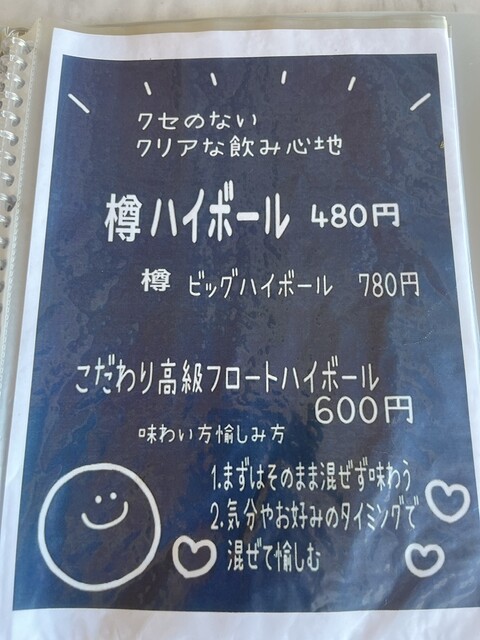 クセのない
クリアな飲み心地
樽ハイボール 480円
樽 ビッグハイボール 780円
こだわり高級フロートハイボール
600円
味わい方愉しみ方
1.まずはそのまま混ぜず味わう
2.気分やお好みのタイミングで
混ぜて愉しむ